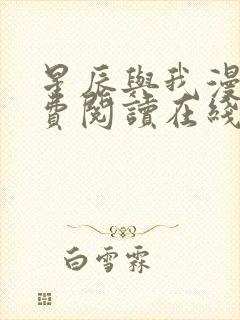 星辰與我漫
費閱讀在綫
白雪霖